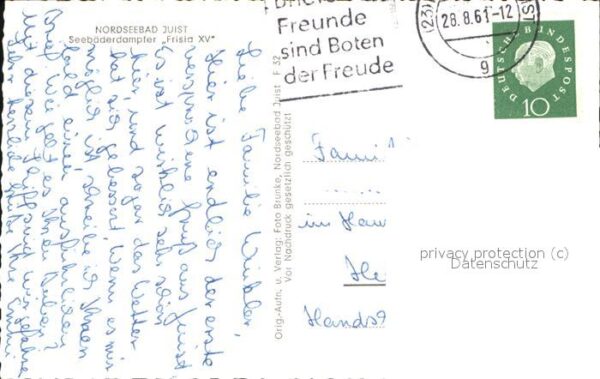 NORDSEEBAD JUIST
Seebäderdampfer „Frisia XV"
Briefe
Freunde
sind Boten
der Freude
(23)
JUIST
28.8.61-12
g
DEUTSCHE BUNDESPOST
10
Liebe Familie Winkler,
Hier ist endlich der erste
versprochene Gruß aus Juist
Es ist wirklich sehr schön
hier, und sogar das Wetter
hat sich gebessert. Wenn es mir
möglich ist schreibe ich Ihnen
bald einen ausführlichen
Brief. Wie geht es Ihnen
Mit diesem Schiff sind wir gefahren
Orig.-Aufn. u. Verlag: Foto Brunke, Nordseebad Juist F 32
Vor Nachdruck gesetzlich geschützt
Fami
im Hau
He
Hands
privacy protection (c)
Datenschutz